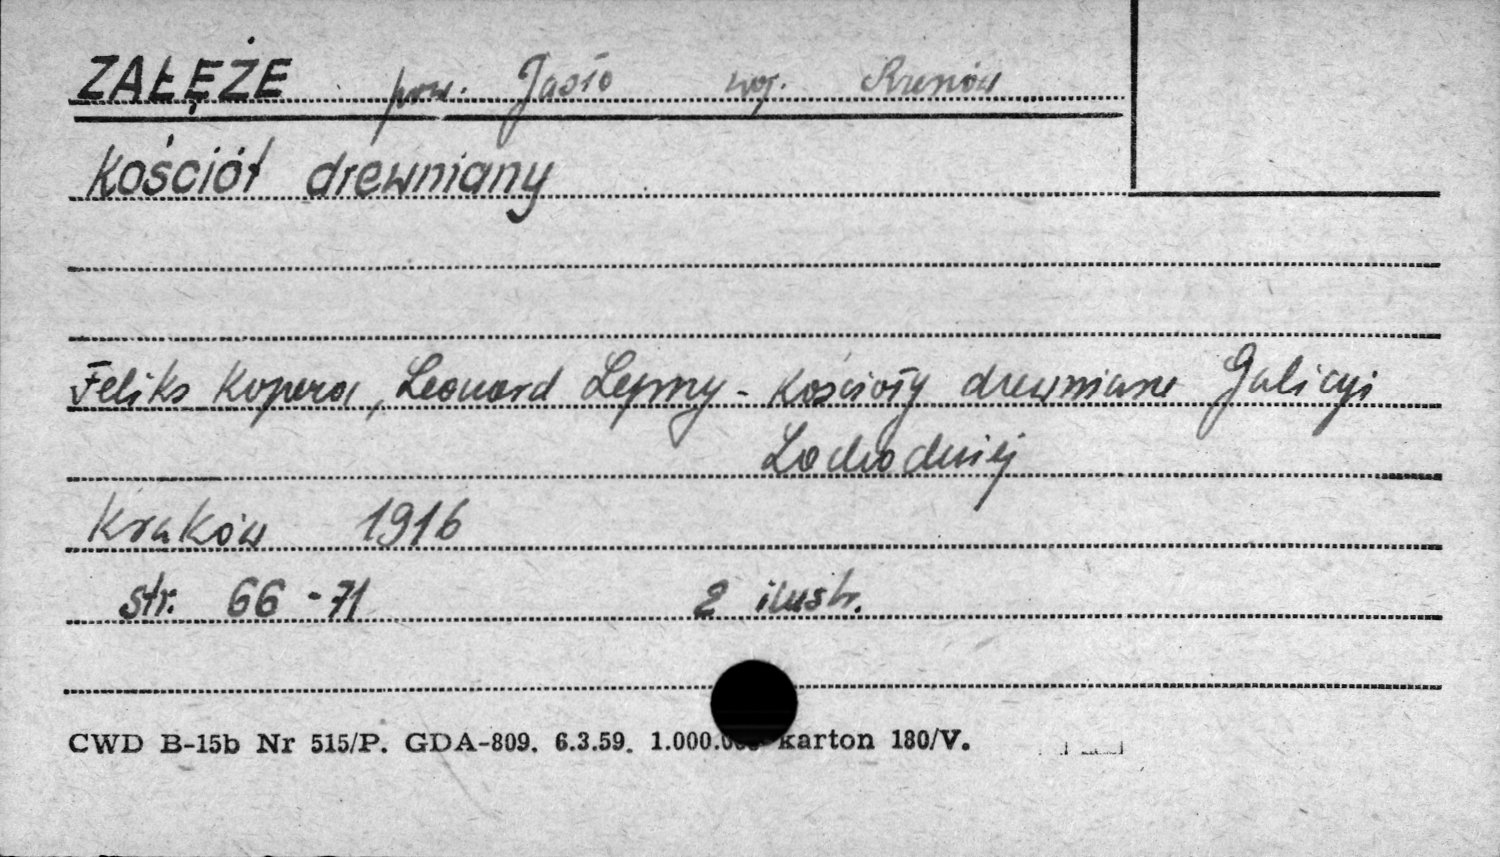 ZAŁĘŻE pow. Jasło woj. Rzeszów
Kościół drewniany
Feliks Kopera, Leonard Lepszy - Kościoły drewniane Galicyi
Zachodniej
Kraków 1916
str. 66 - 71 2 ilustr.
CWD B-15b Nr 515/P. GDA-809. 6.3.59. 1.000.000 karton 180/V.